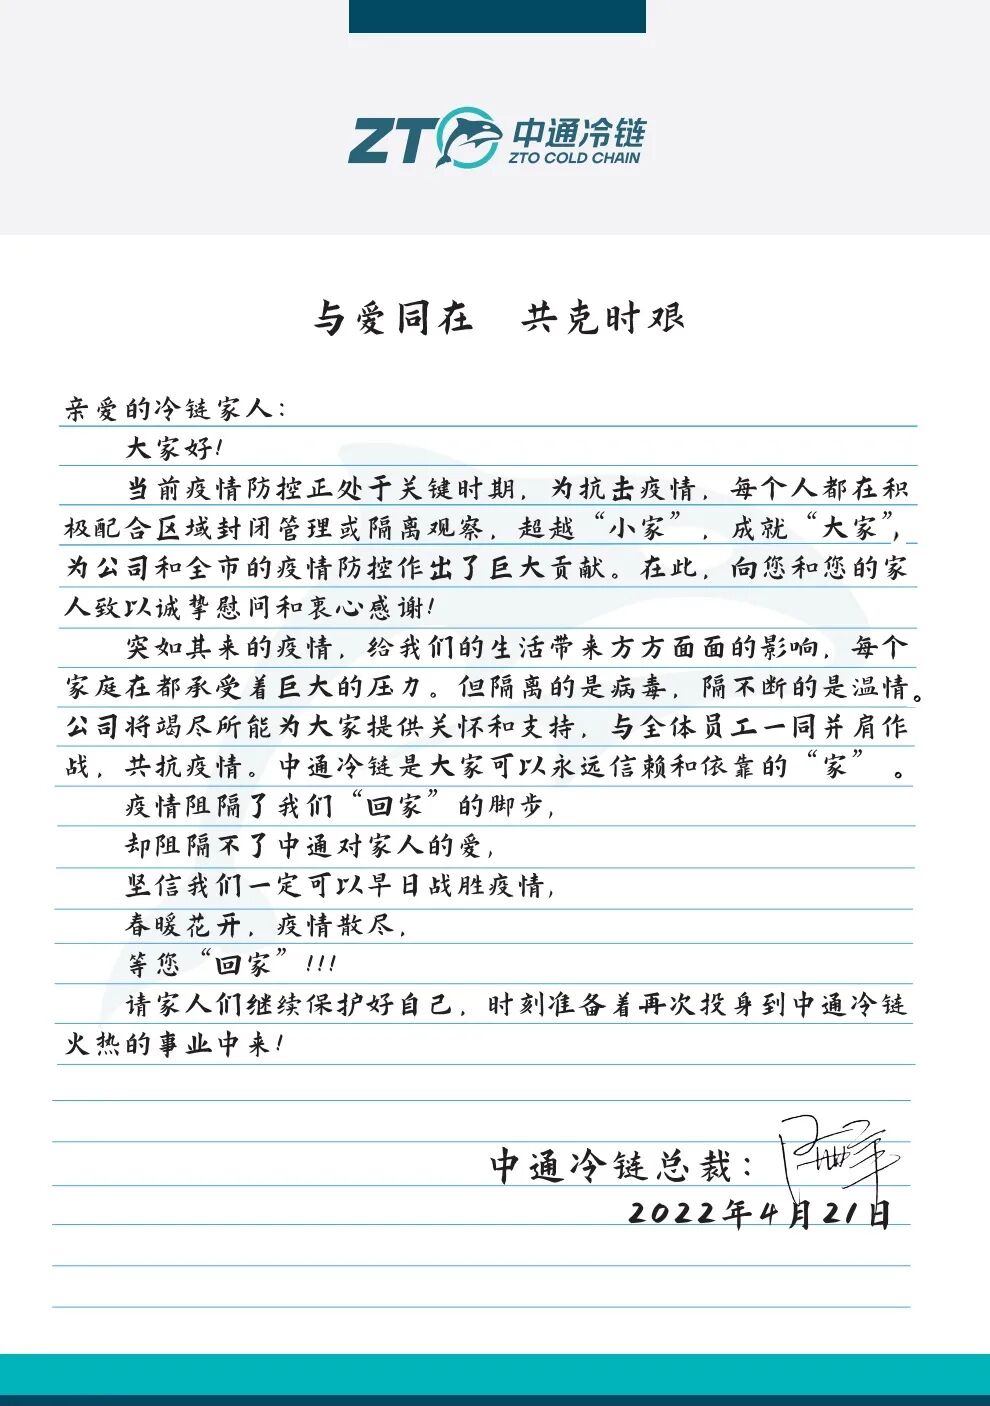 ZTO 中通冷链
ZTO COLD CHAIN
与爱同在 共克时艰
亲爱的冷链家人：
大家好！
当前疫情防控正处于关键时期，为抗击疫情，每个人都在积
极配合区域封闭管理或隔离观察，超越“小家”，成就“大家”，
为公司和全市的疫情防控作出了巨大贡献。在此，向您和您的家
人致以诚挚慰问和衷心感谢！
突如其来的疫情，给我们的生活带来方方面面的影响，每个
家庭在都承受着巨大的压力。但隔离的是病毒，隔不断的是温情。
公司将竭尽所能为大家提供关怀和支持，与全体员工一同并肩作
战，共抗疫情。中通冷链是大家可以永远信赖和依靠的“家”。
疫情阻隔了我们“回家”的脚步，
却阻隔不了中通对家人的爱，
坚信我们一定可以早日战胜疫情，
春暖花开，疫情散尽，
等您“回家”!!!
请家人们继续保护好自己，时刻准备着再次投身到中通冷链
火热的事业中来！
中通冷链总裁：
2022年4月21日